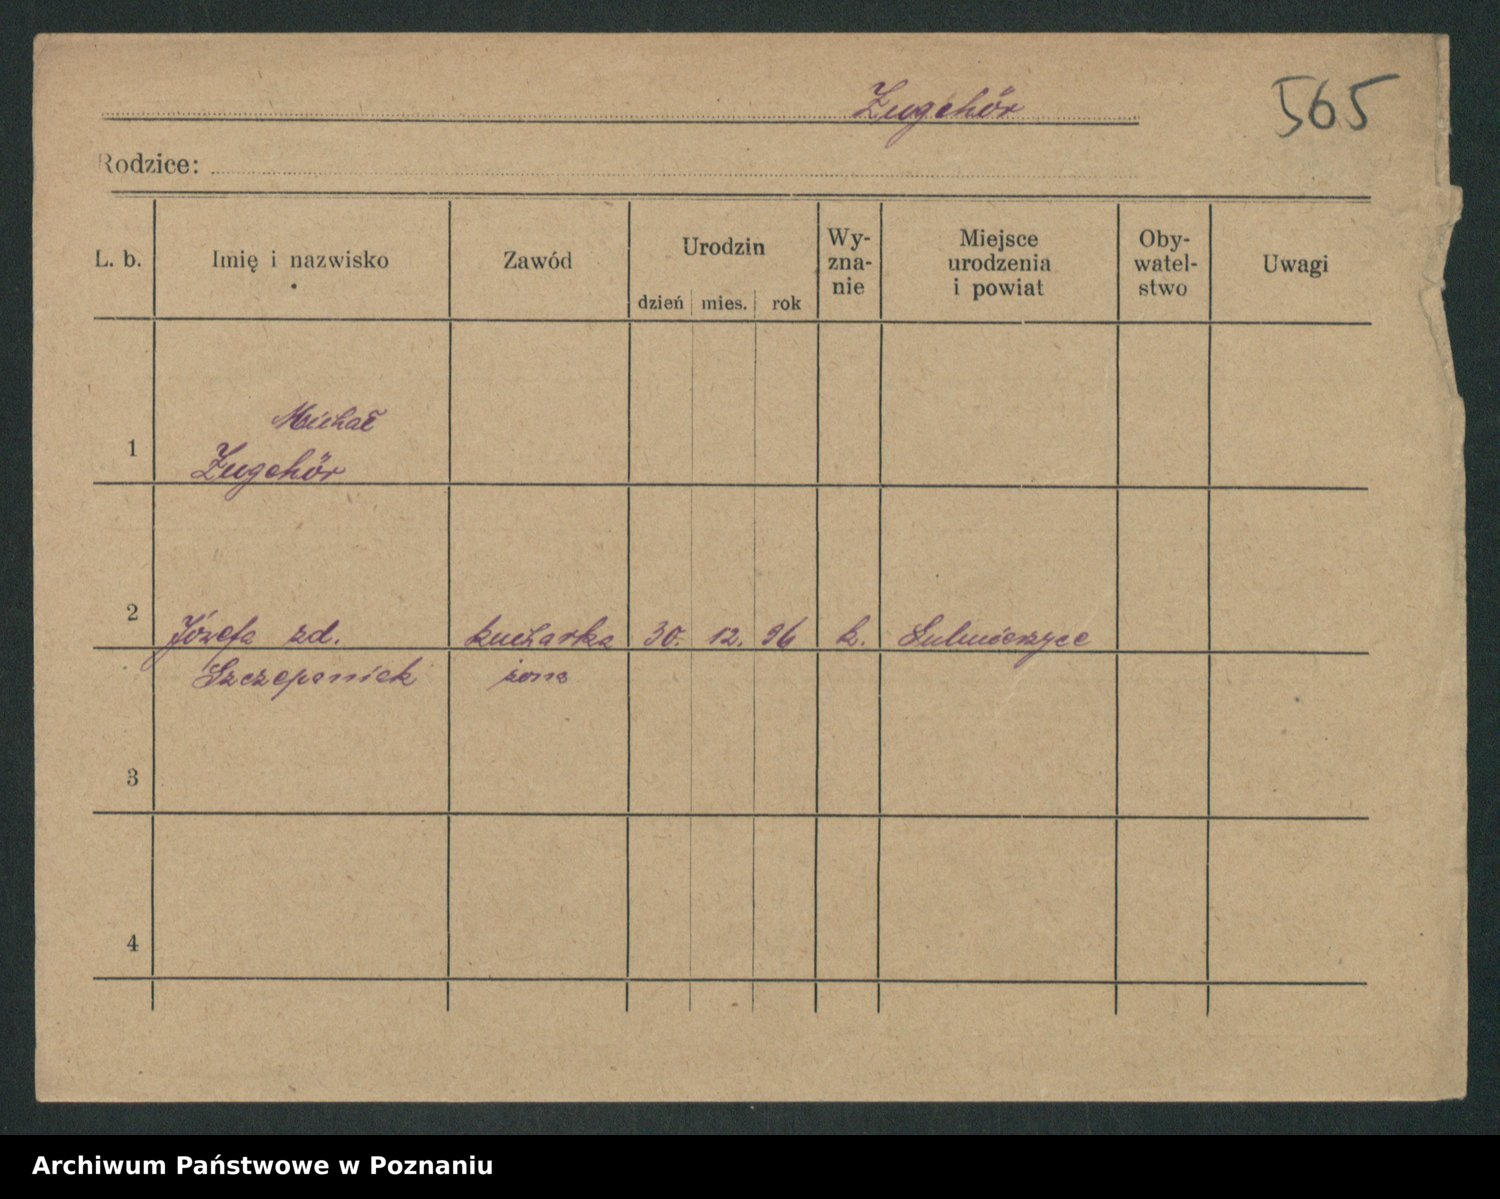 Zugehör
565
Rodzice:
L. b.
Imię i nazwisko
Zawód
Urodzin
dzień mies. rok
Wy-
zna-
nie
Miejsce
urodzenia
i powiat
Oby-
watel-
stwo
Uwagi
1
Michał
Zugehör
2
Józefa zd. kucharka 30. 12. 96 k. Sulmierzyce
Szczepaniak żona
3
4
Archiwum Państwowe w Poznaniu